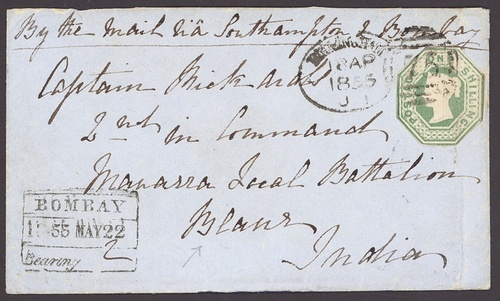 By the Mail viâ Southampton & Bombay
8 AP
1855
ONE SHILLING
POSTAGE
Captain Rickards
2nd in Command
Manarra Local Battalion
BOMBAY
1855 MAY 22
Bearing
2
India